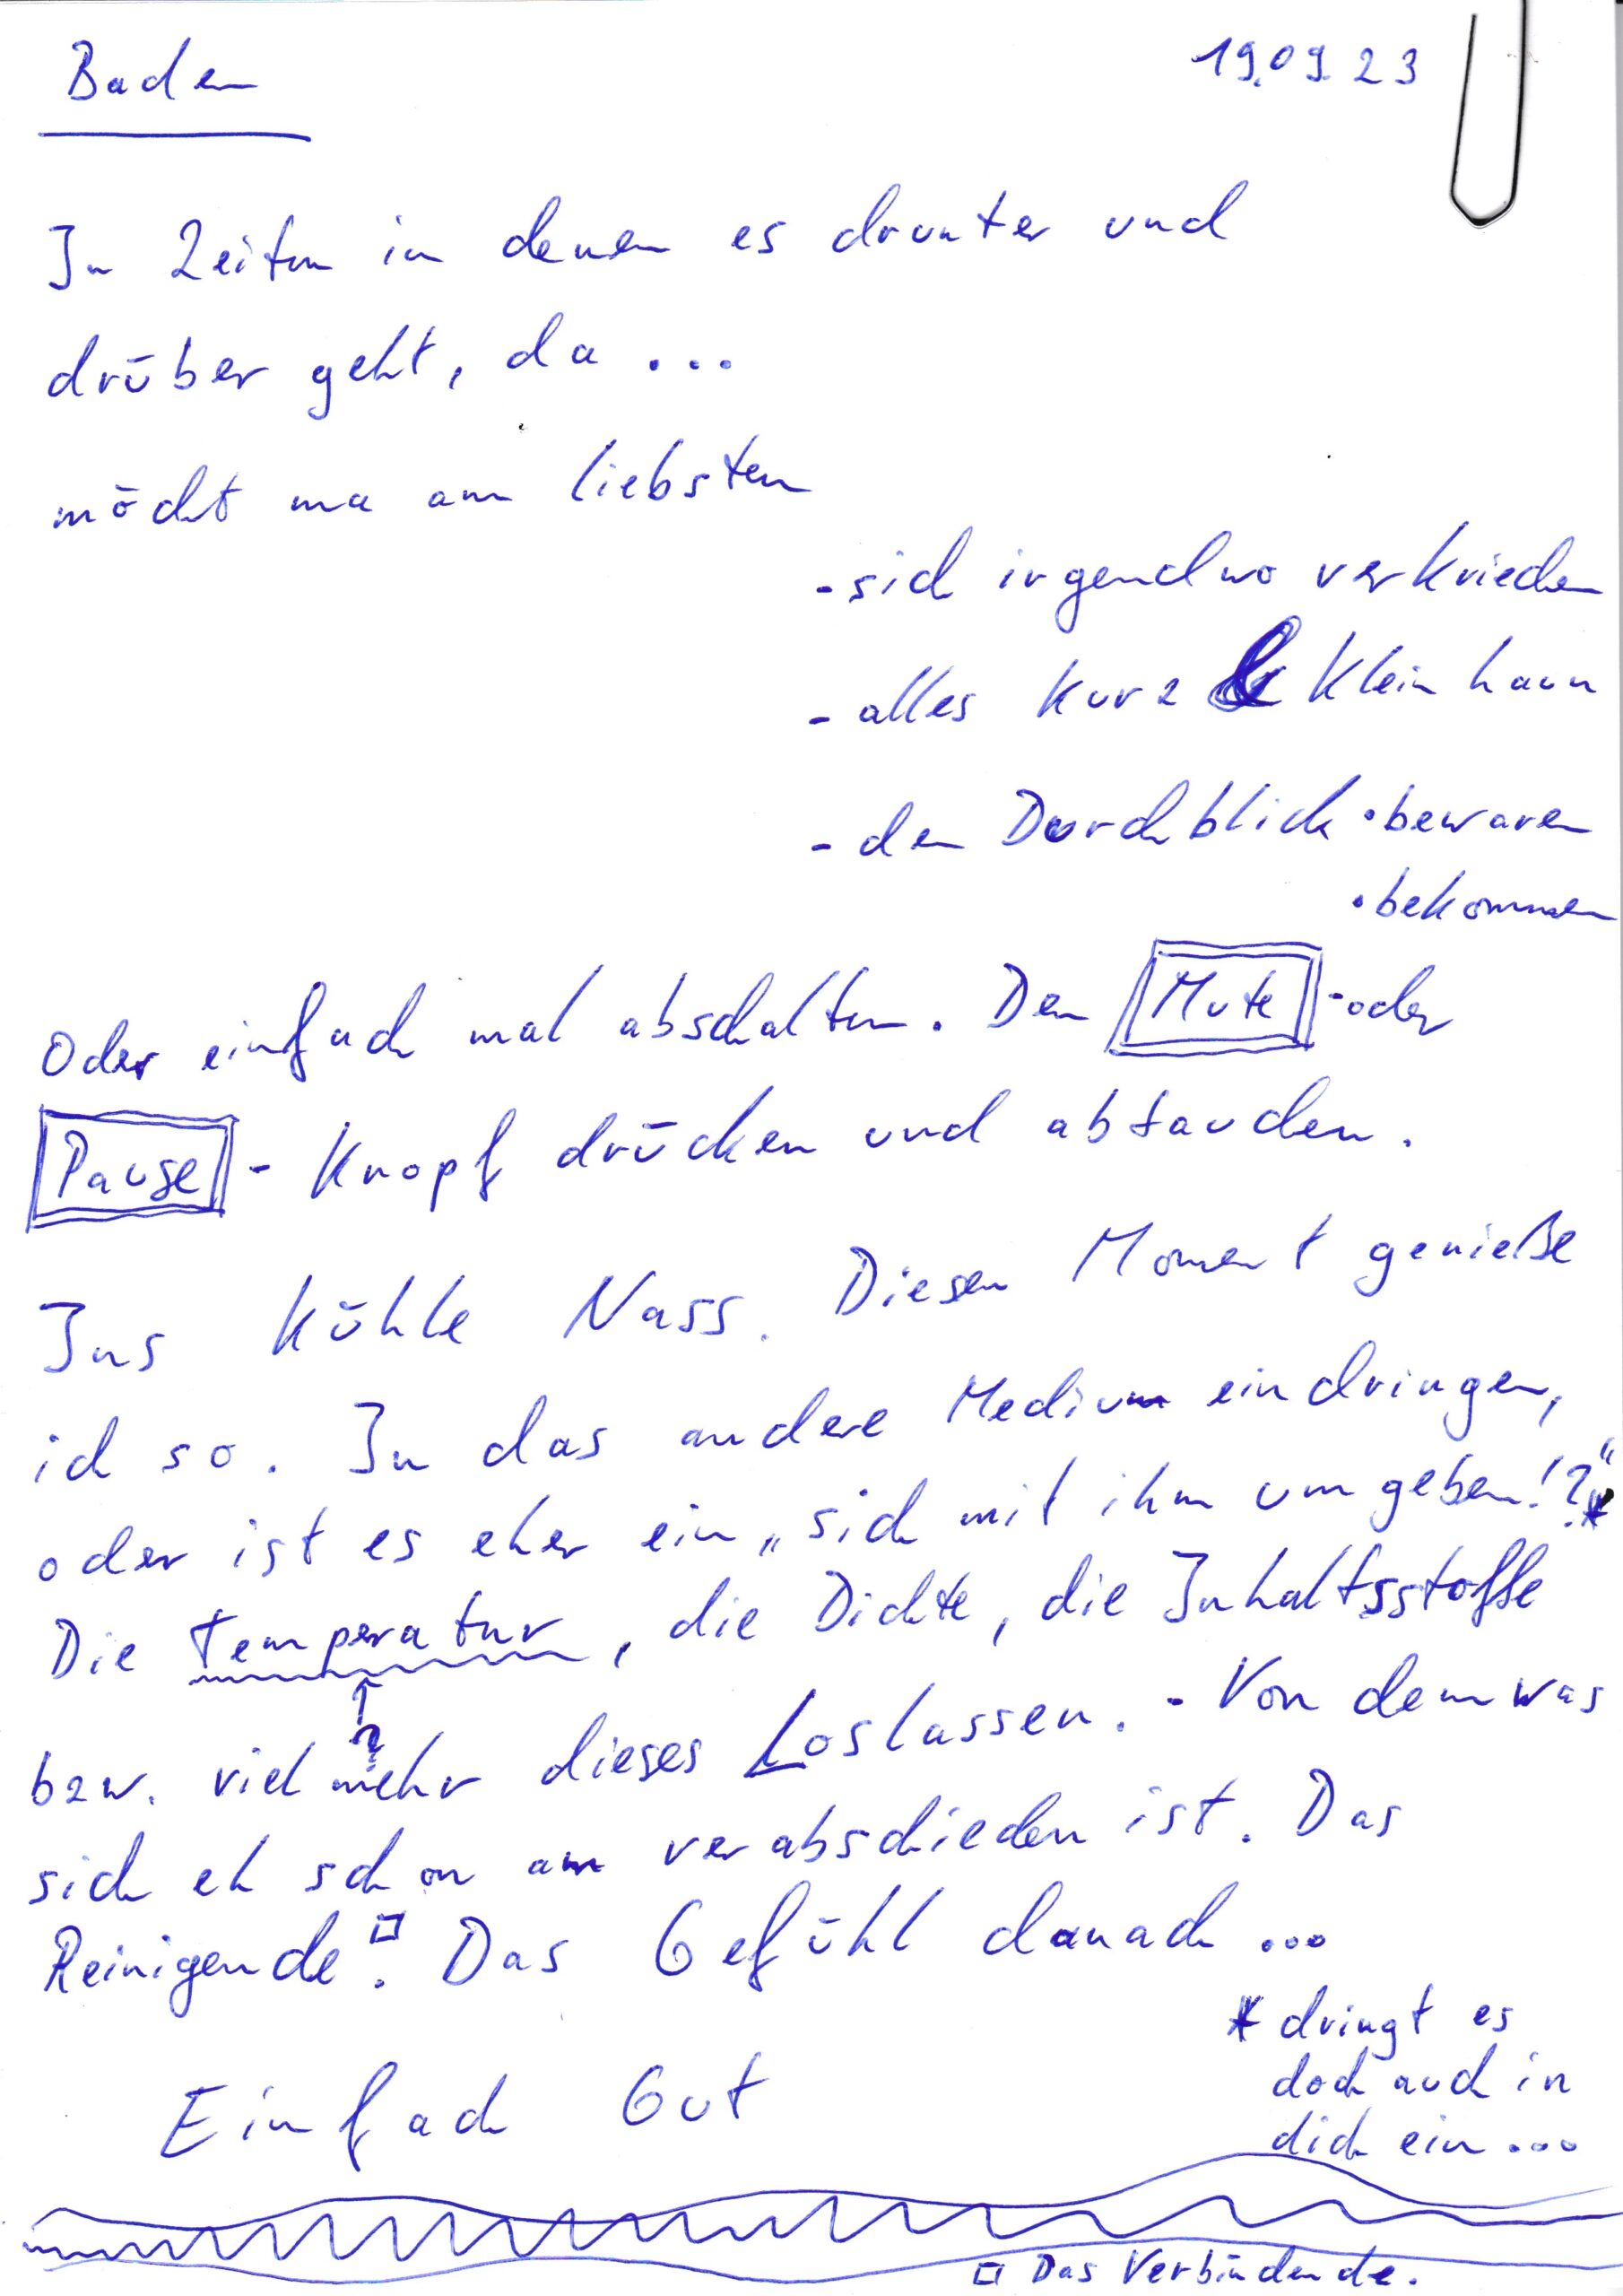 Baden 19.09.23
In Zeiten in denen es drunter und
drüber geht, da ...
möcht ma am liebsten
- sich irgendwo verkriechen
- alles kurz & klein haun
- den Durchblick • bewaren
• bekommen
Oder einfach mal abschalten. Den Mute - oder
Pause - Knopf drücken und abtauchen.
Ins kühle Nass. Diesen Moment genieße
ich so. In das andere Medium eindringen,
oder ist es eher ein „sich mit ihm umgeben!?“*
Die Temperatur, die Dichte, die Inhaltsstoffe
↑
?
bzw. viel mehr dieses Loslassen. - Von dem was
sich eh schon am verabschieden ist. Das
Reinigende□. Das Gefühl danach ...
* dringt es
doch auch in
dich ein ...
Einfach Gut
□ Das Verbindende.